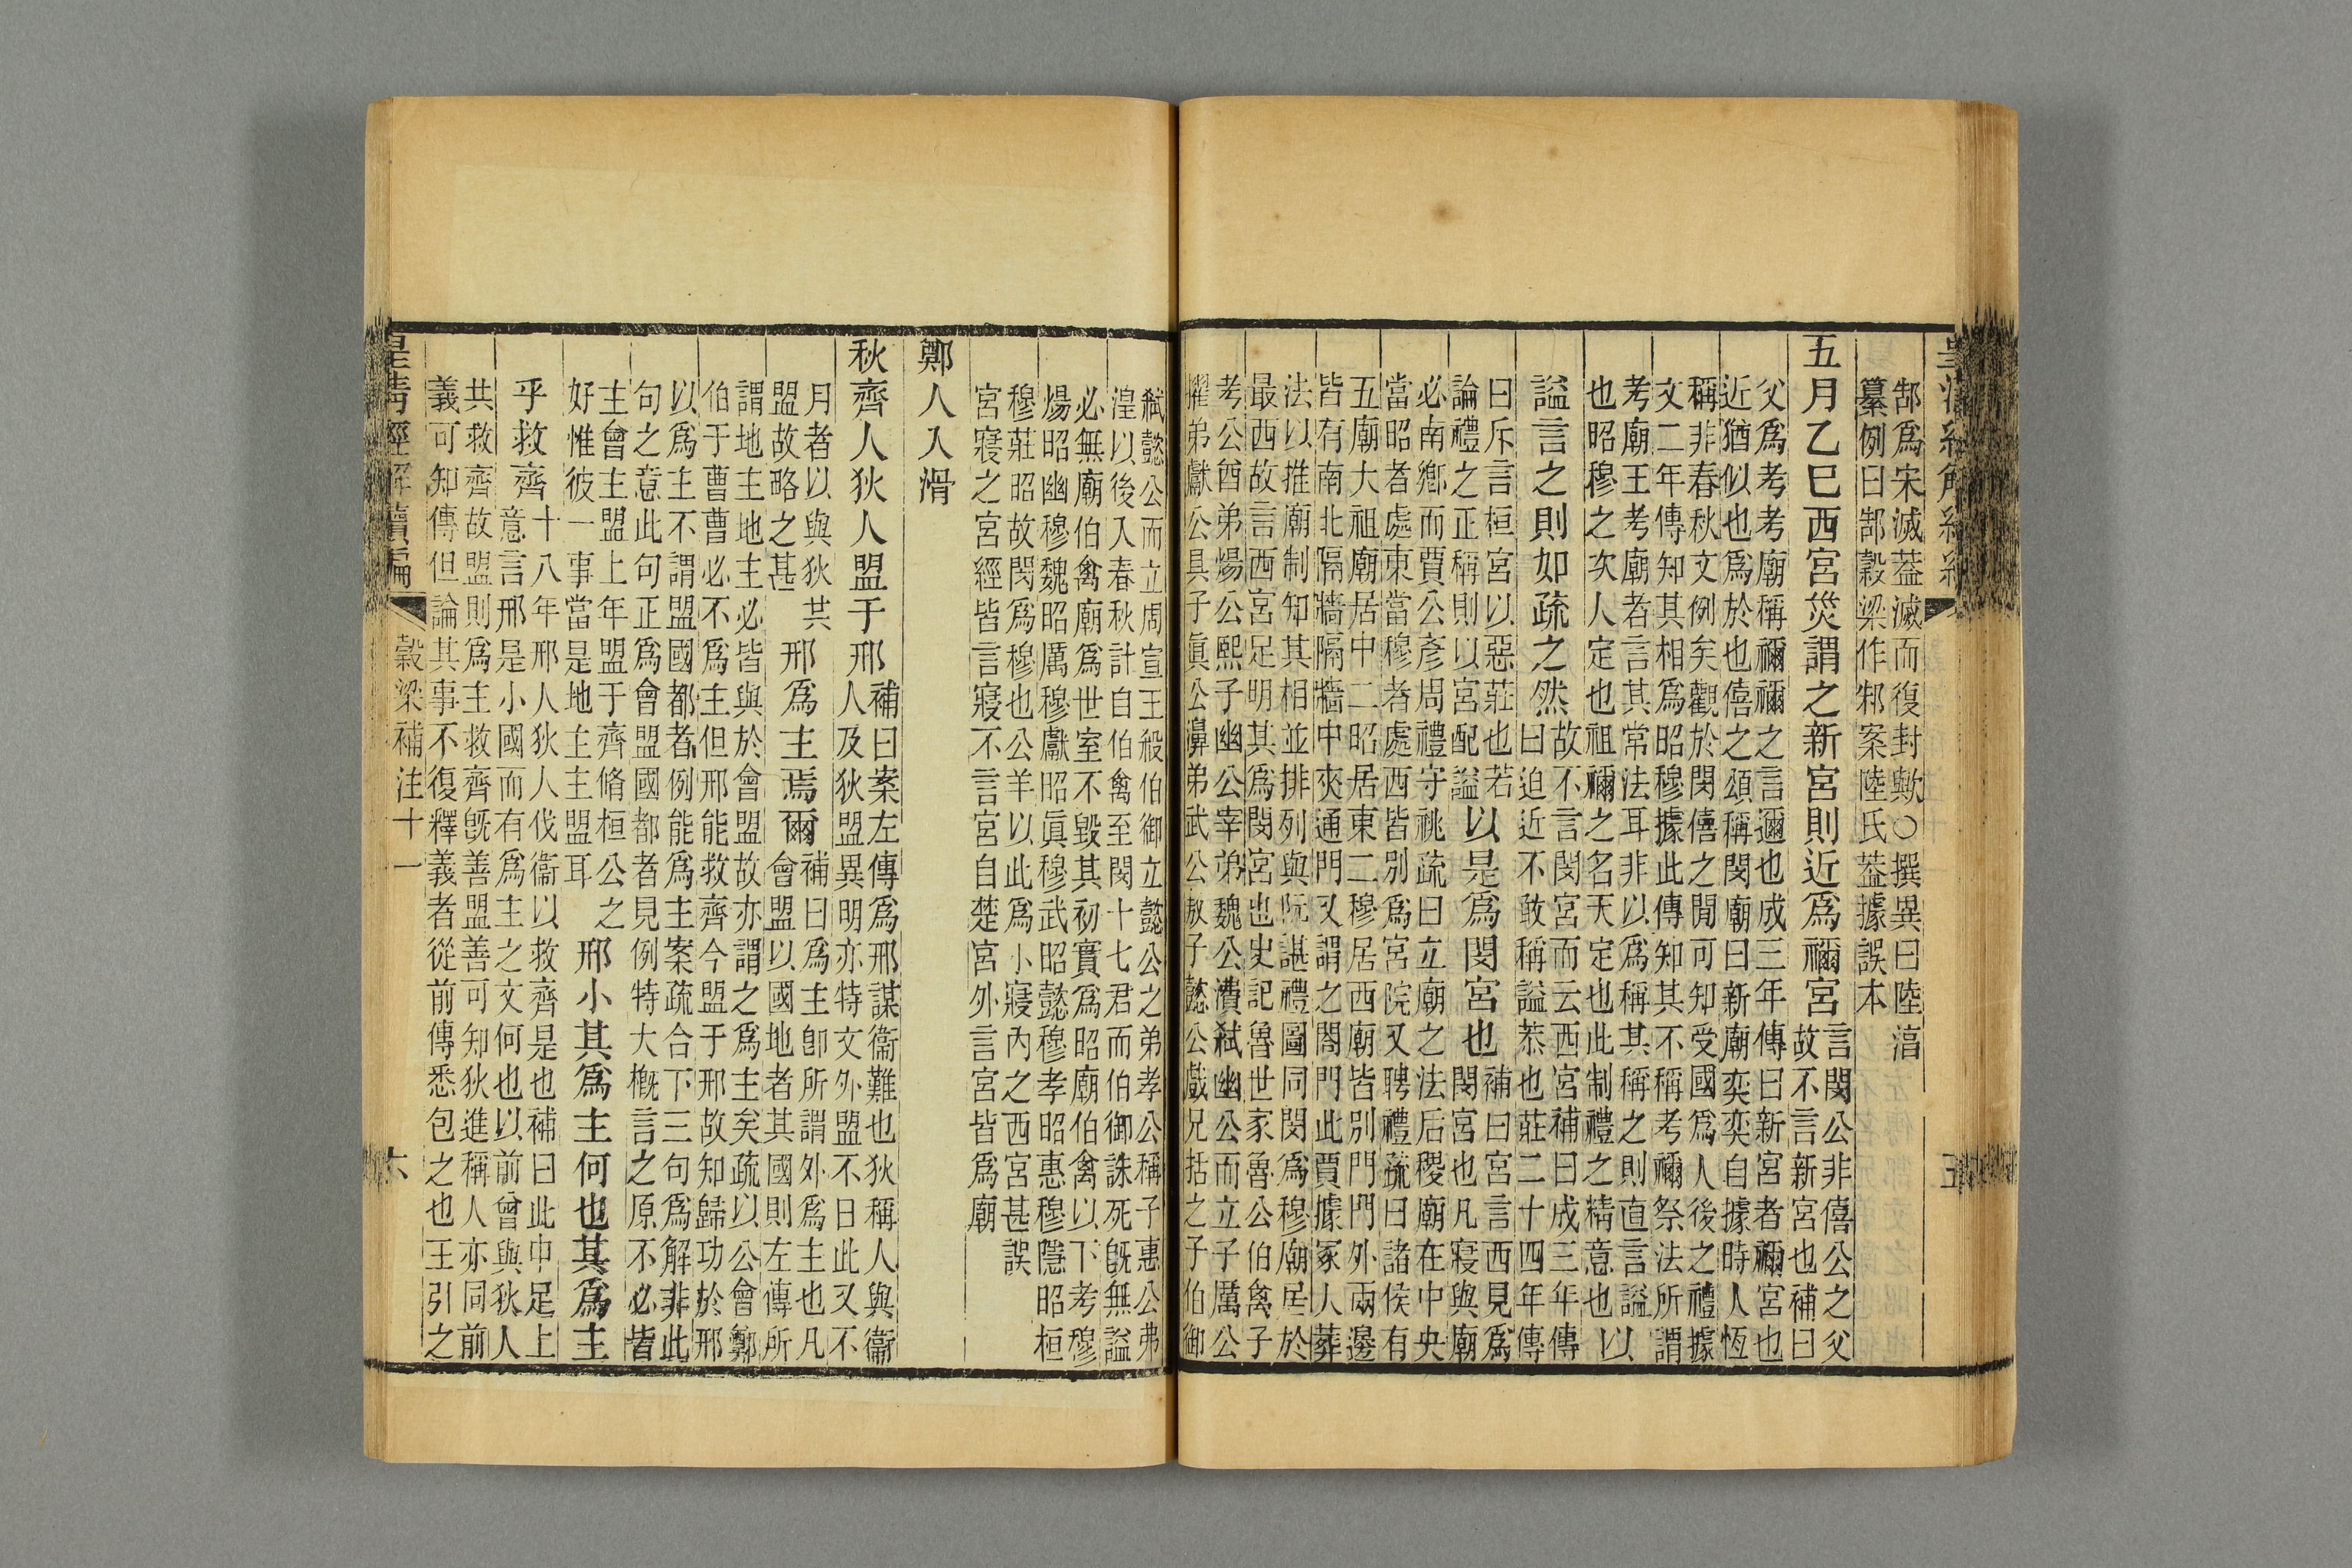 皇清經解續編 五
郜爲宋滅葢滅而復封歟○撰異曰陸湻
纂例曰郜穀梁作邾案陸氏葢據誤本
五月乙巳西宮災謂之新宮則近爲禰宮
言閔公非僖公之父
故不言新宮也補曰
父爲考考廟稱禰禰之言邇也成三年傳曰新宮者禰宮也
近猶似也爲於也僖之頌稱閔廟曰新廟奕奕自據時人恆
稱非春秋文例矣觀於閔僖之閒可知受國爲人後之禮據
文二年傳知其相爲昭穆據此傳知其不稱考禰祭法所謂
考廟王考廟者言其常法耳非以爲稱其稱之則直言謚
也昭穆之次人定也祖禰之名天定也此制禮之精意也
以
謚言之則如疏之然
故不言閔宮而云西宮補曰成三年傳
曰迫近不敢稱謚恭也莊二十四年傳
曰斥言桓宮以惡莊也若
論禮之正稱則以宮配謚
以是爲閔宮也
補曰宮言西見爲
閔宮也凡寢與廟
必南鄉而賈公彥周禮守祧疏曰立廟之法后稷廟在中央
當昭者處東當穆者處西皆別爲宮院又聘禮疏曰諸侯有
五廟大祖廟居中二昭居東二穆居西廟皆別門門外兩邊
皆有南北隔牆隔牆中夾通門又謂之閤門此賈據冢人葬
法以推廟制知其相並排列與阮諶禮圖同閔爲穆廟居於
最西故言西宮足明其爲閔宮也史記魯世家魯公伯禽子
考公酋弟煬公熙子幽公宰弟魏公㵒弑幽公而立子厲公
擢弟獻公具子眞公濞弟武公敖子懿公戲兄括之子伯御
弑懿公而立周宣王殺伯御立懿公之弟孝公稱子惠公弗
湟以後入春秋計自伯禽至閔十七君而伯御誅死旣無謚
必無廟伯禽廟爲世室不毀其初實爲昭廟伯禽以下考穆
煬昭幽穆魏昭厲穆獻昭眞穆武昭懿穆孝昭惠穆隱昭桓
穆莊昭故閔爲穆也公羊以此爲小寢內之西宮甚誤
宮寢之宮經皆言寢不言宮自楚宮外言宮皆爲廟
鄭人入滑
秋齊人狄人盟于邢
補曰案左傳爲邢謀衞難也狄稱人與衞
人及狄盟異明亦特文外盟不日此又不
月者以與狄共
盟故略之甚
邢爲主焉爾
補曰爲主卽所謂外爲主也凡
會盟以國地者其國則左傳所
謂地主地主必皆與於會盟故亦謂之爲主矣疏以公會鄭
伯于曹曹必不爲主但邢能救齊今盟于邢故知歸功於邢
以爲主不謂盟國都者例能爲主案疏合下三句爲解非此
句之意此句正爲會盟國都者見例特大槪言之原不必皆
主會主盟上年盟于齊脩桓公之
好惟彼一事當是地主主盟耳
邢小其爲主何也其爲主
乎救齊
十八年邢人狄人伐衞以救齊是也補曰此中足上
意言邢是小國而有爲主之文何也以前曾與狄人
共救齊故盟則爲主救齊旣善盟善可知狄進稱人亦同前
義可知傳但論其事不復釋義者從前傳悉包之也王引之
皇清經解續編 穀梁補注十一 六